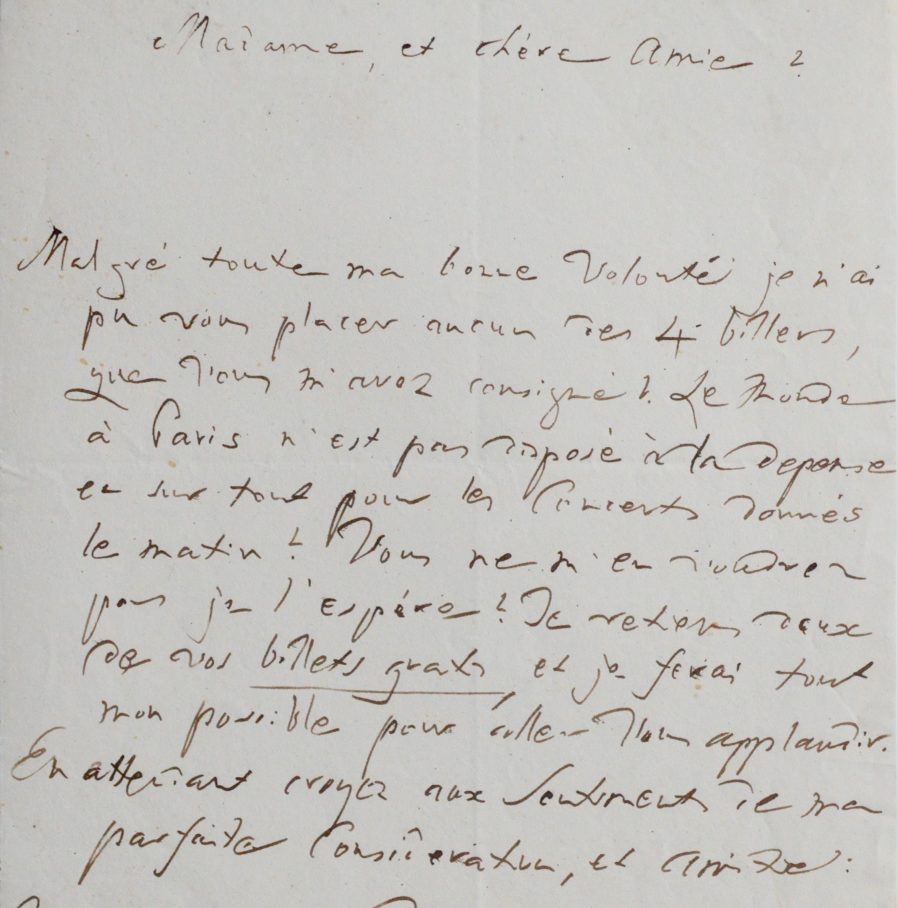 Madame, et chère Amie !
Malgré toute ma bonne Volonté je n'ai
pu vous placer aucun des 4 billets,
que Vous m'avez consigné !. Le Monde
à Paris n'est pas disposé à la depense
et sur tout pour les Concerts donnés
le matin ! Vous ne m'en voudrez
pas je l'espère ! Je retiens deux
de vos billets gratis, et je ferai tout
mon possible pour aller Vous applaudir.
En attendant croyez aux Sentiments de ma
parfaite Consideration, et Amitié :